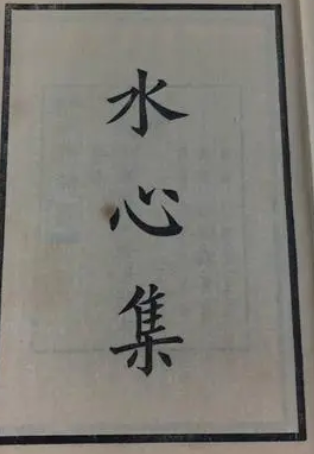 水心集